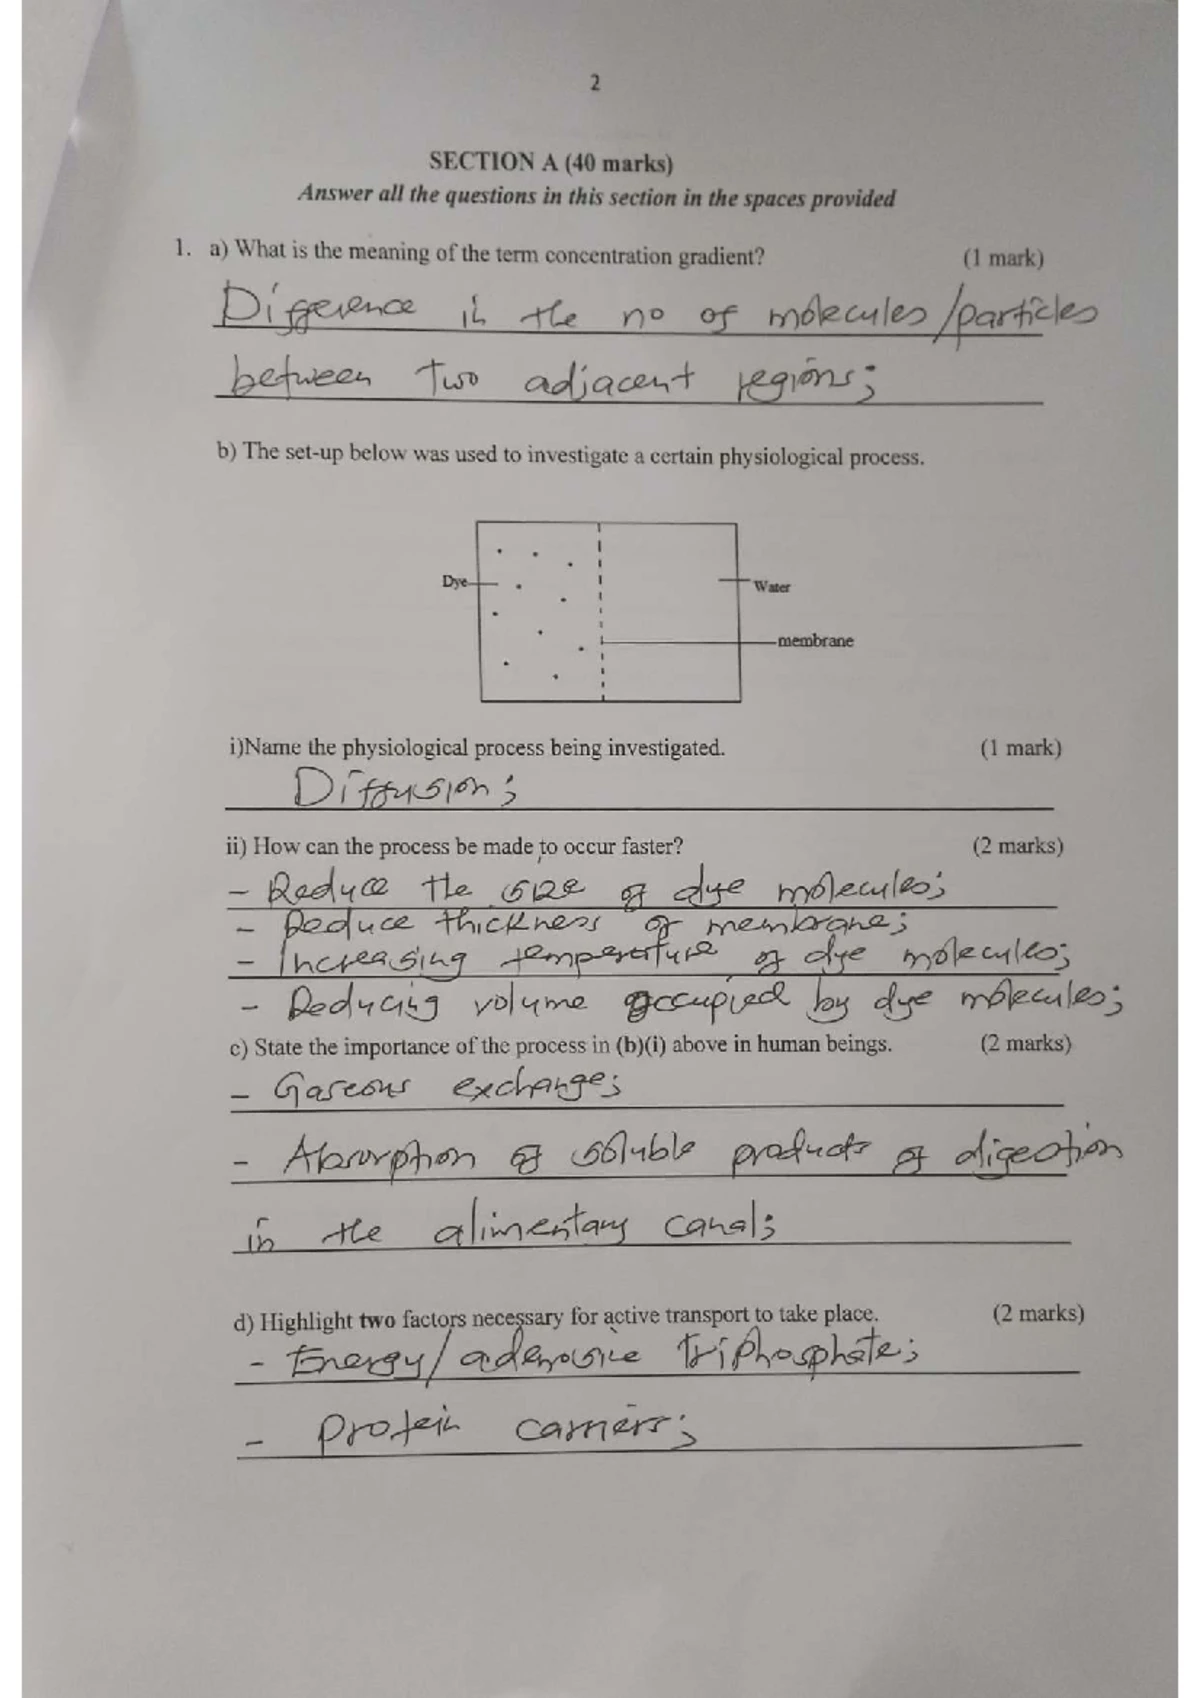 2
SECTION A (40 marks)
Answer all the questions in this section in the spaces provided
1. a) What is the meaning of the term concentration gradient? (1 mark)
Difference in the no of molecules/particles
between two adjacent regions;
b) The set-up below was used to investigate a certain physiological process.
Dye
Water
membrane
i)Name the physiological process being investigated. (1 mark)
Diffusion;
ii) How can the process be made to occur faster? (2 marks)
- Reduce the size of dye molecules;
- Reduce thickness of membrane;
- Increasing temperature of dye molecules;
- Reducing volume occupied by dye molecules;
c) State the importance of the process in (b)(i) above in human beings. (2 marks)
- Gaseous exchange;
- Absorption of soluble products of digestion
in the alimentary canal;
d) Highlight two factors necessary for active transport to take place. (2 marks)
- Energy/adenosine triphosphate;
- Protein carriers;